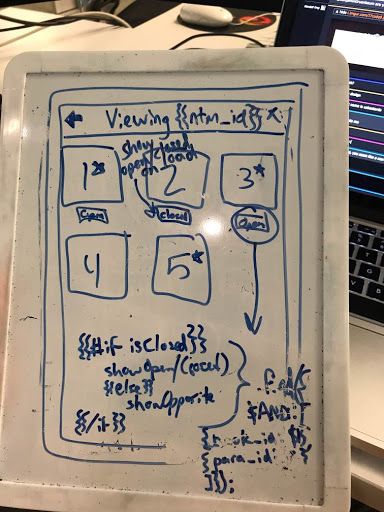 ← Viewing {{ntm_id}} x
show closed
open/load
on
1* 2 3*
open closed open
4 5*
{{#if isClosed}}
showOpen/Closed
{{else}}
showOpposite
{{/if}}
$AND: [
{book_id
{para_id
]});